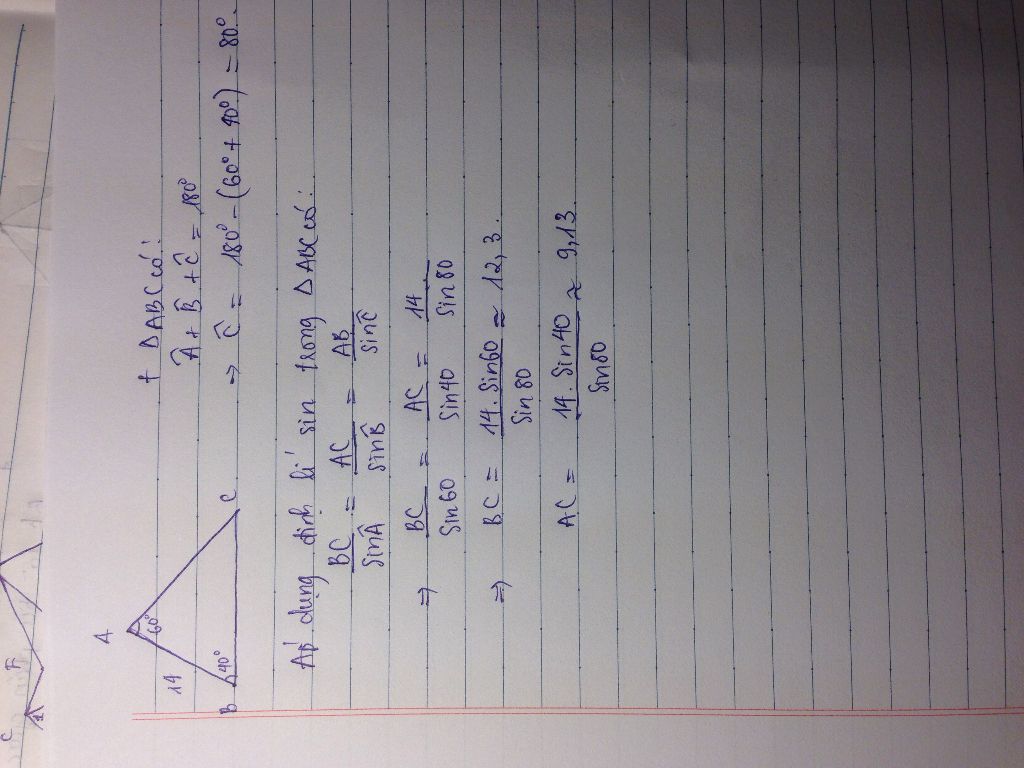 + ΔABC có:
Â + B̂ + Ĉ = 180°
⇒ Ĉ = 180° - (60° + 40°) = 80°.
A
14
60°
B
40°
C
Áp dụng định lí sin trong ΔABC có:
BC/SinÂ = AC/sinB̂ = AB/sinĈ
⇒ BC/Sin60 = AC/Sin40 = 14/Sin80
⇒ BC = 14.Sin60/Sin80 ≈ 12,3.
AC = 14.Sin40/Sin80 ≈ 9,13.
C